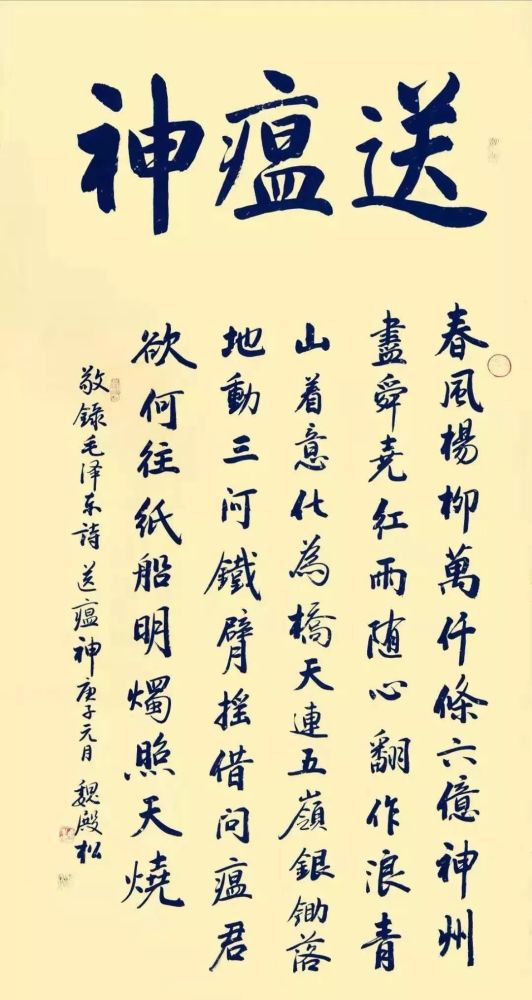 送瘟神
春風楊柳萬仟條六億神州
盡舜堯紅雨随心翻作浪青
山着意化為橋天連五嶺銀鋤落
地動三河鐵臂摇借问瘟君
欲何往纸船明燭照天燒
敬錄毛泽东詩送瘟神庚子元月魏殿松